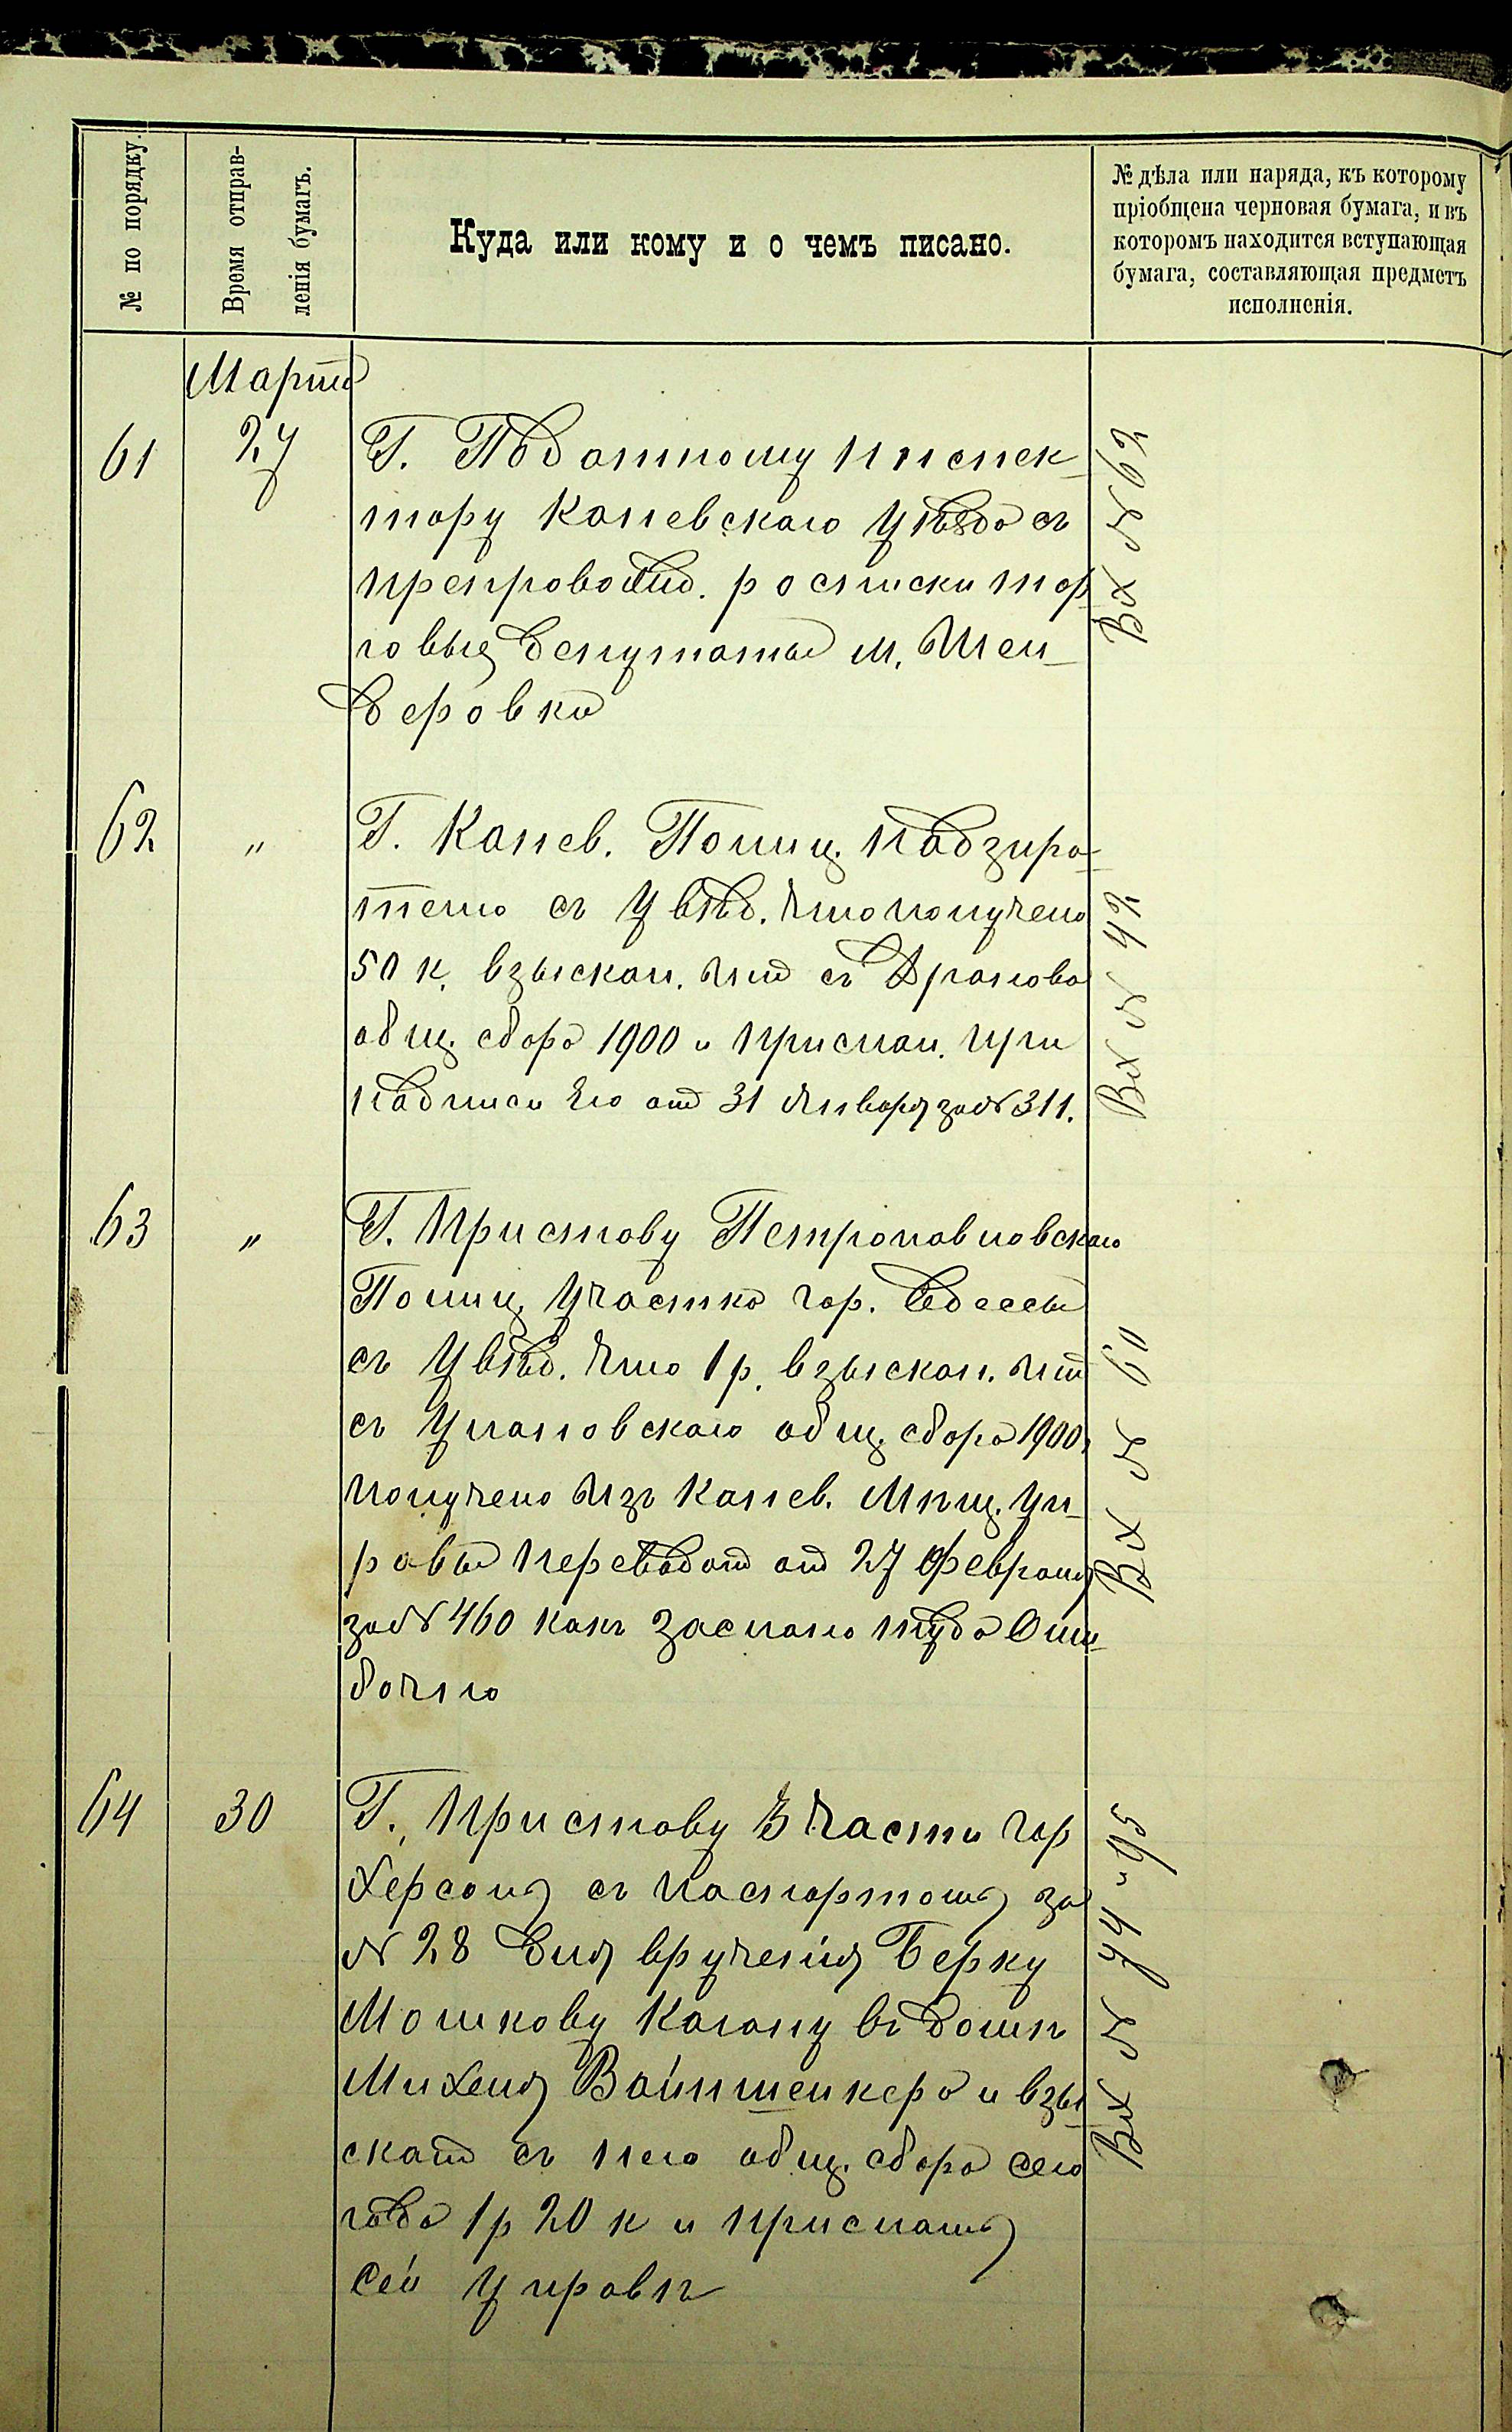 № по порядку.
Время отправ-
ленія бумагъ.
Куда или кому и о чемъ писано.
№ дѣла или наряда, къ которому
пріобщена черновая бумага, и въ
которомъ находится вступающая
бумага, составляющая предметъ
исполненія.
Марта
61 27 Г. Податному Инспек-
тору Каневскаго Уѣзда съ
препровожд. росписки тор
говыя депутаты м. Шен-
деровки
Вх № 62
62 " Г. Канев. Полиц. Надзира-
телю съ Увѣд. что получено
50 к. взыскан. Им съ Драгова
общ. сбора 1900 и прислан. при
надписи Его от 31 Января за № 311.
Вх № 42
63 " Г. Приставу Петропавловскаго
Полиц. Участка гор. Одессы
съ Увѣд. что 1 р. взыскан. Им
съ Улановскаго общ. сбора 1900,
получено Изъ Канев. Мѣщ. Уп-
равы Переводом от 27 Февраля
за № 460 какъ заслано туда Оши-
бочно
Вх № 60
64 30 Г. Приставу 3 Части гор
Херсона съ паспортомъ за
№ 28 для врученія Берку
Мошкову Кагану въ домѣ
Михеля Вайншенкера и взы
скат съ него общ. сбора сего
года 1 р 20 к и прислать
Сей Управѣ
Вх № 74 и 95